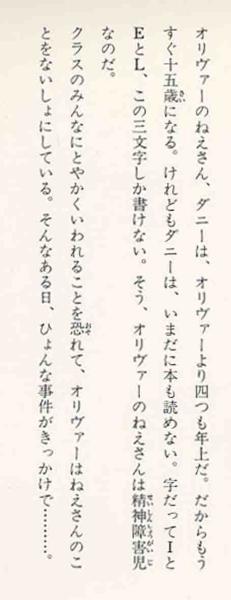 オリヴァーのねえさん、ダニーは、オリヴァーより四つも年上だ。だからもう
すぐ十五歳になる。けれどもダニーは、いまだに本も読めない。字だってIと
EとL、この三文字しか書けない。そう、オリヴァーのねえさんは精神障害児
なのだ。
クラスのみんなにとやかくいわれることを恐れて、オリヴァーはねえさんのこ
とをないしょにしている。そんなある日、ひょんな事件がきっかけで………。